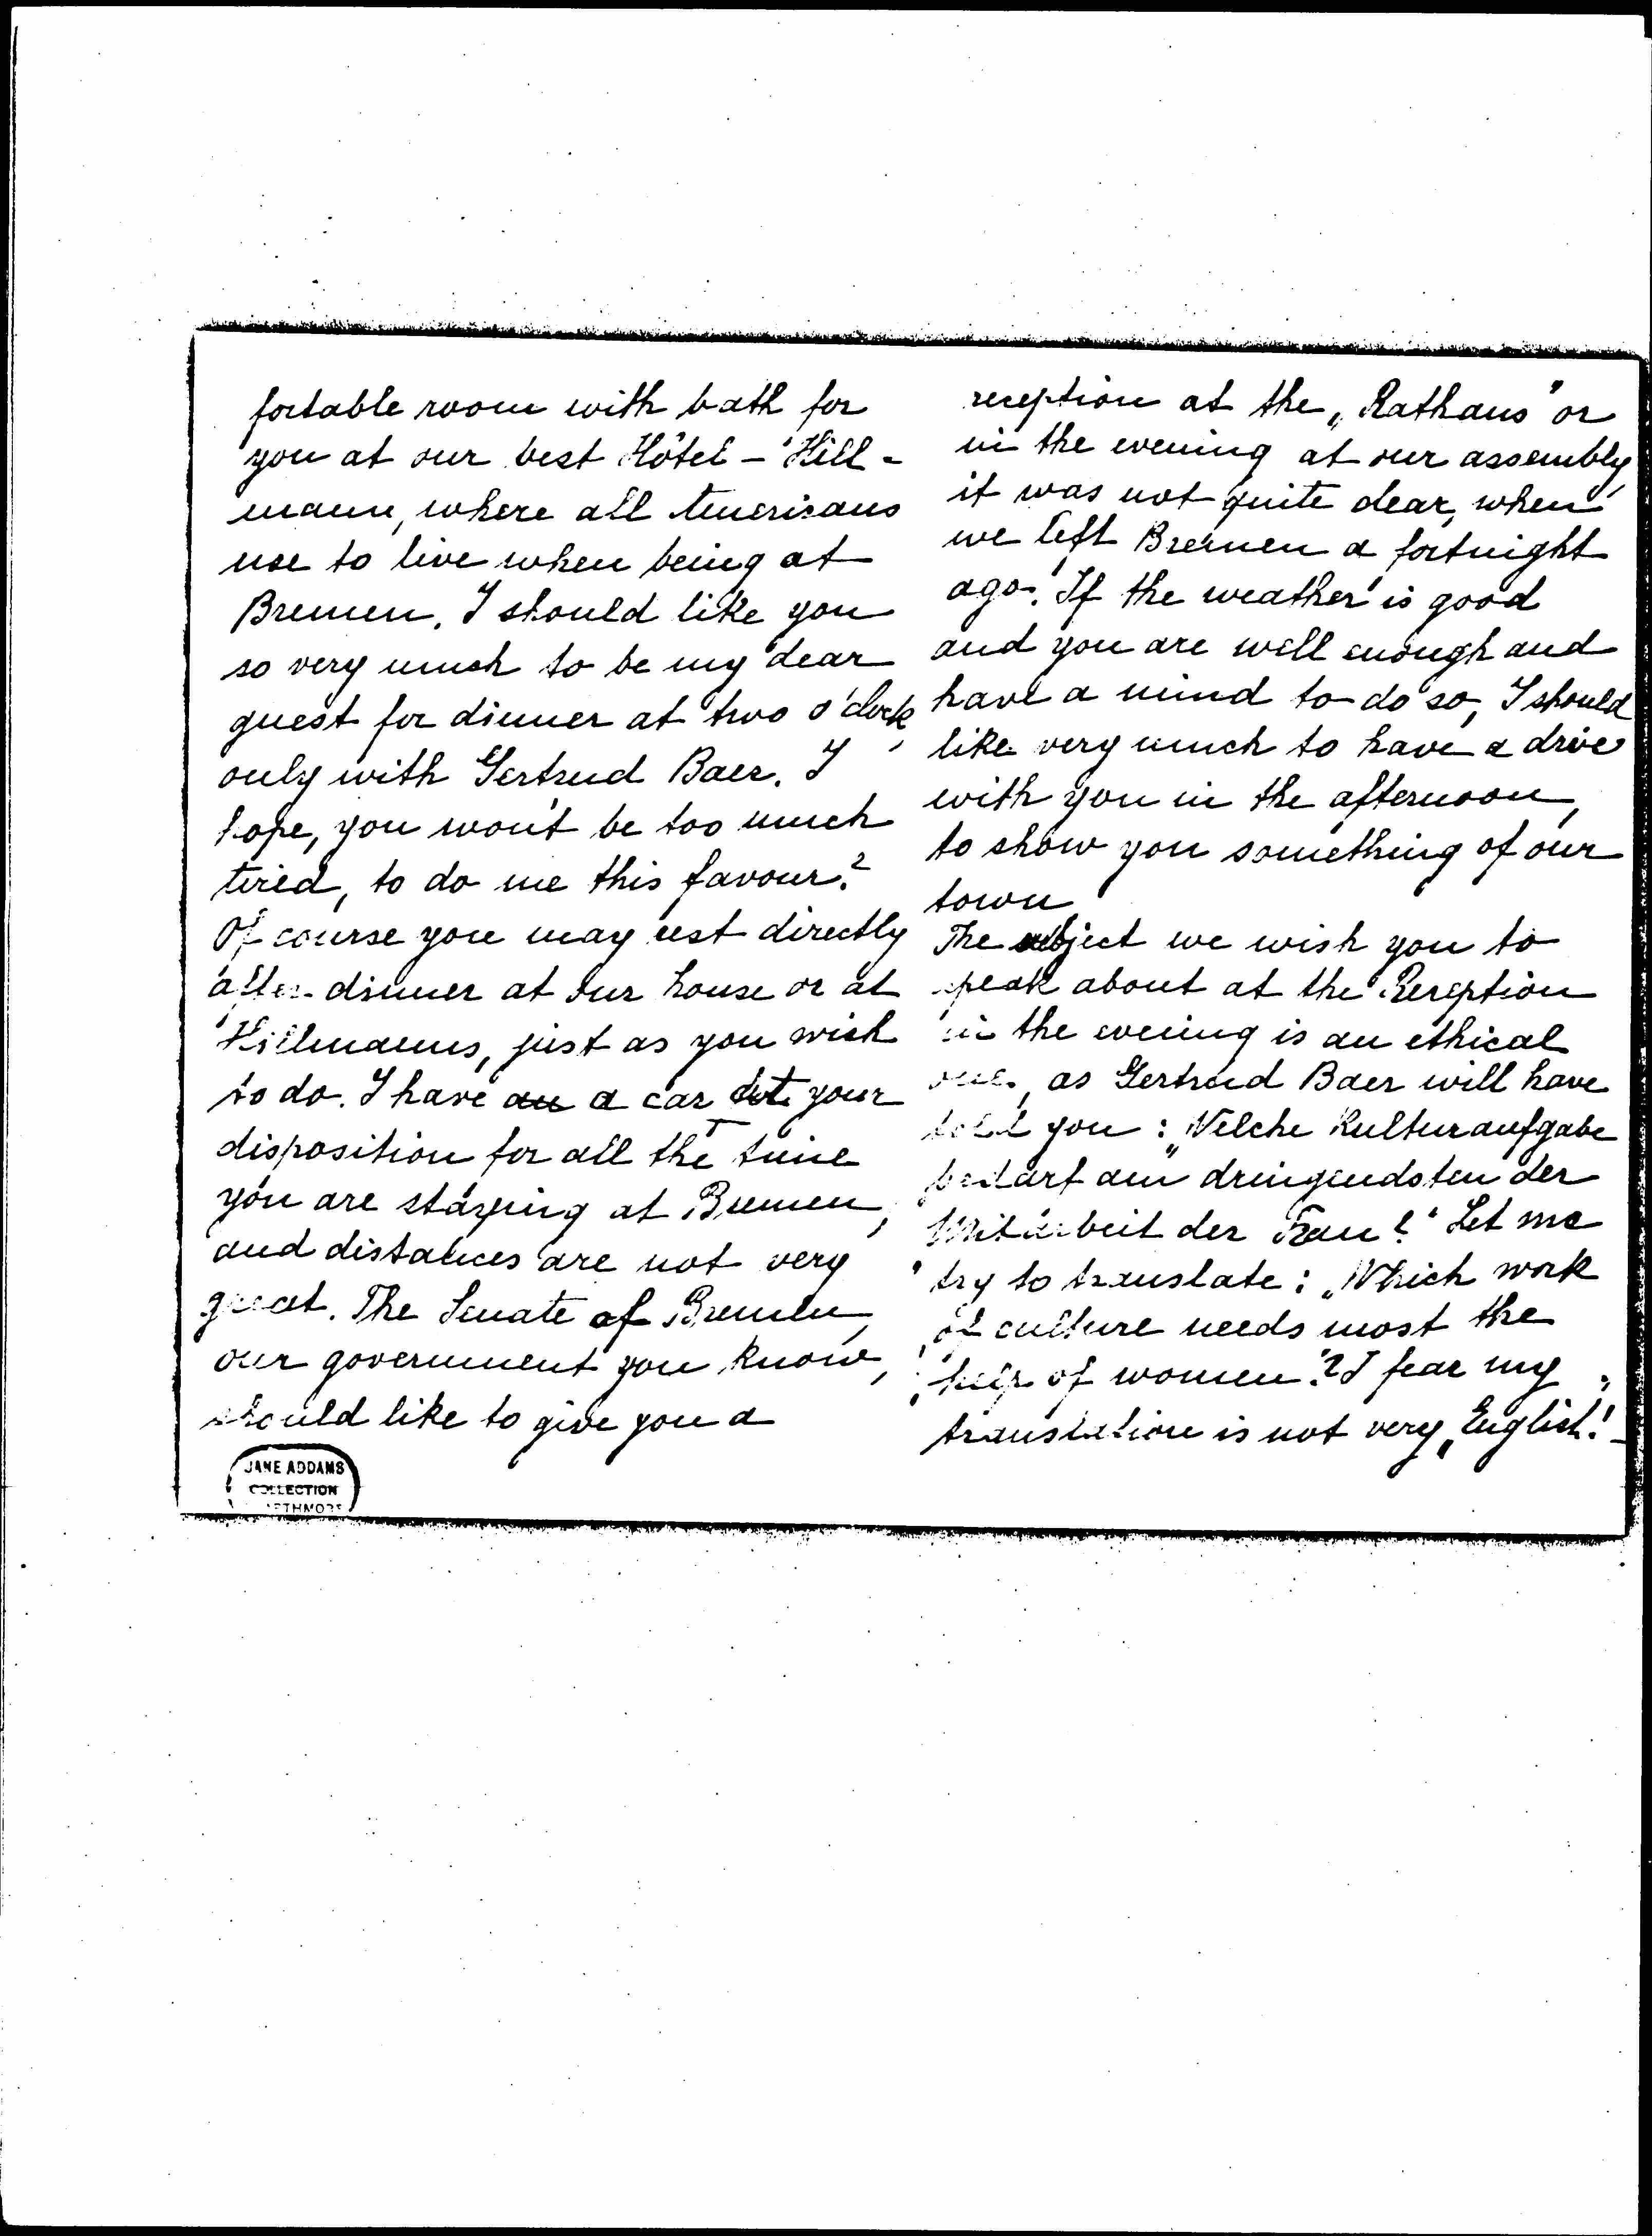 fortable room with bath for
you at our best Hôtel – Hill-
mann, where all Americans
use to live when being at
Bremen. I should like you
so very much to be my dear
guest for dinner at two o'clock,
only with Gertrud Baer. I
hope, you wont be too much
tired, to do me this favour?
Of course you may rest directly
after dinner at our house or at
Hillmanns, just as you wish
to do. I have an a car at your
disposition for all the time
you are staying at Bremen,
and distances are not very
great. The Senate of Bremen,
our government you know,
should like to give you a
JANE ADDAMS
COLLECTION
reception at the „Rathaus" or
in the evening at our assembly,
it was not quite clear, when
we left Bremen a fortnight
ago. If the weather is good
and you are well enough and
have a mind to do so, I should
like very much to have a drive
with you in the afternoon,
to show you something of our
town
The subject we wish you to
speak about at the Reception
in the evening is an ethical
one, as Gertrud Baer will have
told you: „Welche Kulturaufgabe
bedarf am dringendsten der
Mitarbeit der Frau?" Let me
try to translate: „Which work
of culture needs most the
help of women"? I fear my
translation is not very „English"! –